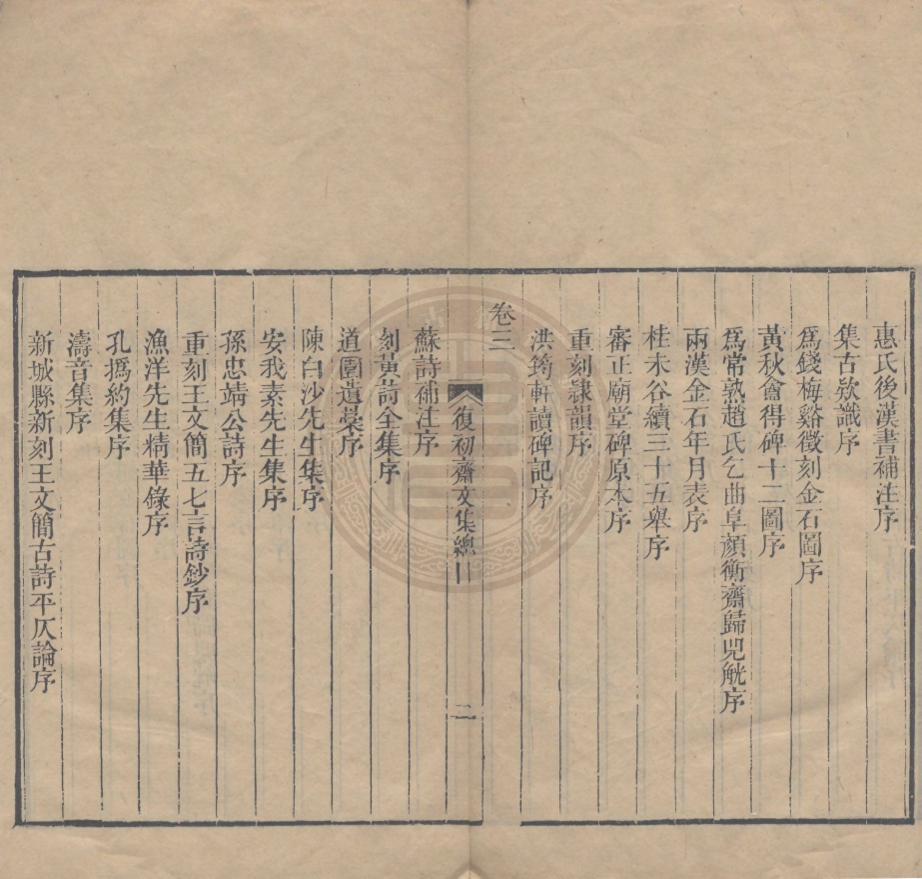 惠氏後漢書補注序
集古欵識序
爲錢梅谿徵刻金石圖序
黃秋盦得碑十二圖序
爲常熟趙氏乞曲阜顏衡齋歸兕觥序
兩漢金石年月表序
桂未谷續三十五舉序
審正廟堂碑原本序
重刻隸韻序
洪筠軒讀碑記序
卷三
復初齋文集總目
二
蘇詩補注序
刻黃詩全集序
道園遺槀序
陳白沙先生集序
安我素先生集序
孫忠靖公詩序
重刻王文簡五七言詩鈔序
漁洋先生精華錄序
孔撝約集序
濤音集序
新城縣新刻王文簡古詩平仄論序